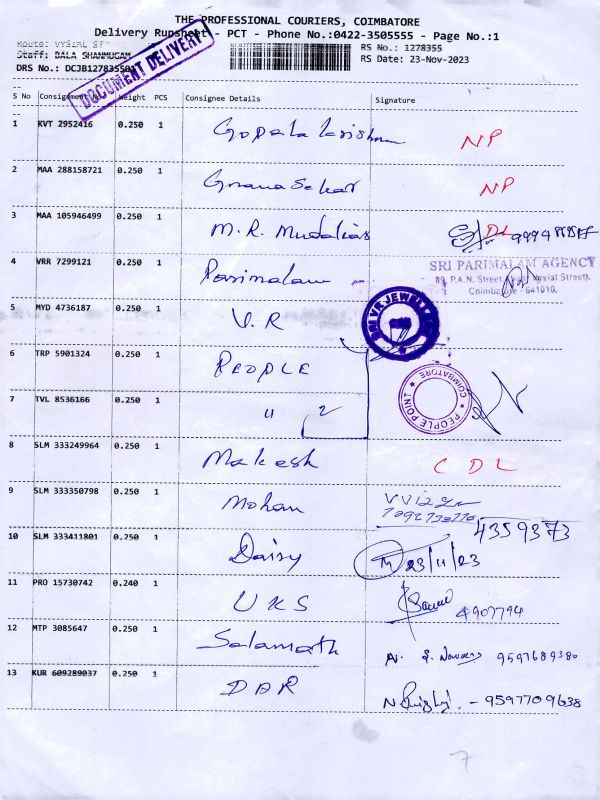 THE PROFESSIONAL COURIERS, COIMBATORE
Delivery Runsheet - PCT - Phone No.:0422-3505555 - Page No.:1
Route: VYSIAL ST
RS No.: 1278355
Staff: BALA SHANMUGAM
RS Date: 23-Nov-2023
DRS No.: DCJB127835501
DOCUMENT DELIVERY
S No Consignment No Weight PCS Consignee Details Signature
1 KVT 2952416 0.250 1 Gopala krishnan NP
2 MAA 288158721 0.250 1 Gnana Sekar NP
3 MAA 105946499 0.250 1 M.R. Mudaliar DL
4 VRR 7299121 0.250 1 Parimalam
SRI PARIMALAM AGENCY
89, P.A.N. Street, Vysial Street),
Coimbatore - 641010.
5 MYD 4736187 0.250 1 V.R
SRI VR JEWELLERS
6 TRP 5901324 0.250 1 PEOPLE
PEOPLE POINT * COIMBATORE *
7 TVL 8536166 0.250 1 " 2
8 SLM 333249964 0.250 1 Makesh CDL
9 SLM 333350798 0.250 1 Mohan
4359373
10 SLM 333411801 0.250 1 Daisy 23/11/23
11 PRO 15730742 0.240 1 UKS 4907794
12 MTP 3085647 0.250 1 Salamath 9597689380
13 KUR 609289037 0.250 1 DBR - 9597709638
7